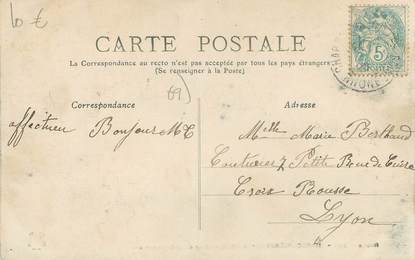 10 €
CARTE POSTALE
La Correspondance au recto n'est pas acceptée par tous les pays étrangers
(Se renseigner à la Poste)
69
Correspondance
Adresse
affectueux Bonjour
Melle Marie Berthaud
Petite Rue de Cuire
Croix Rousse
Lyon
5
RHONE